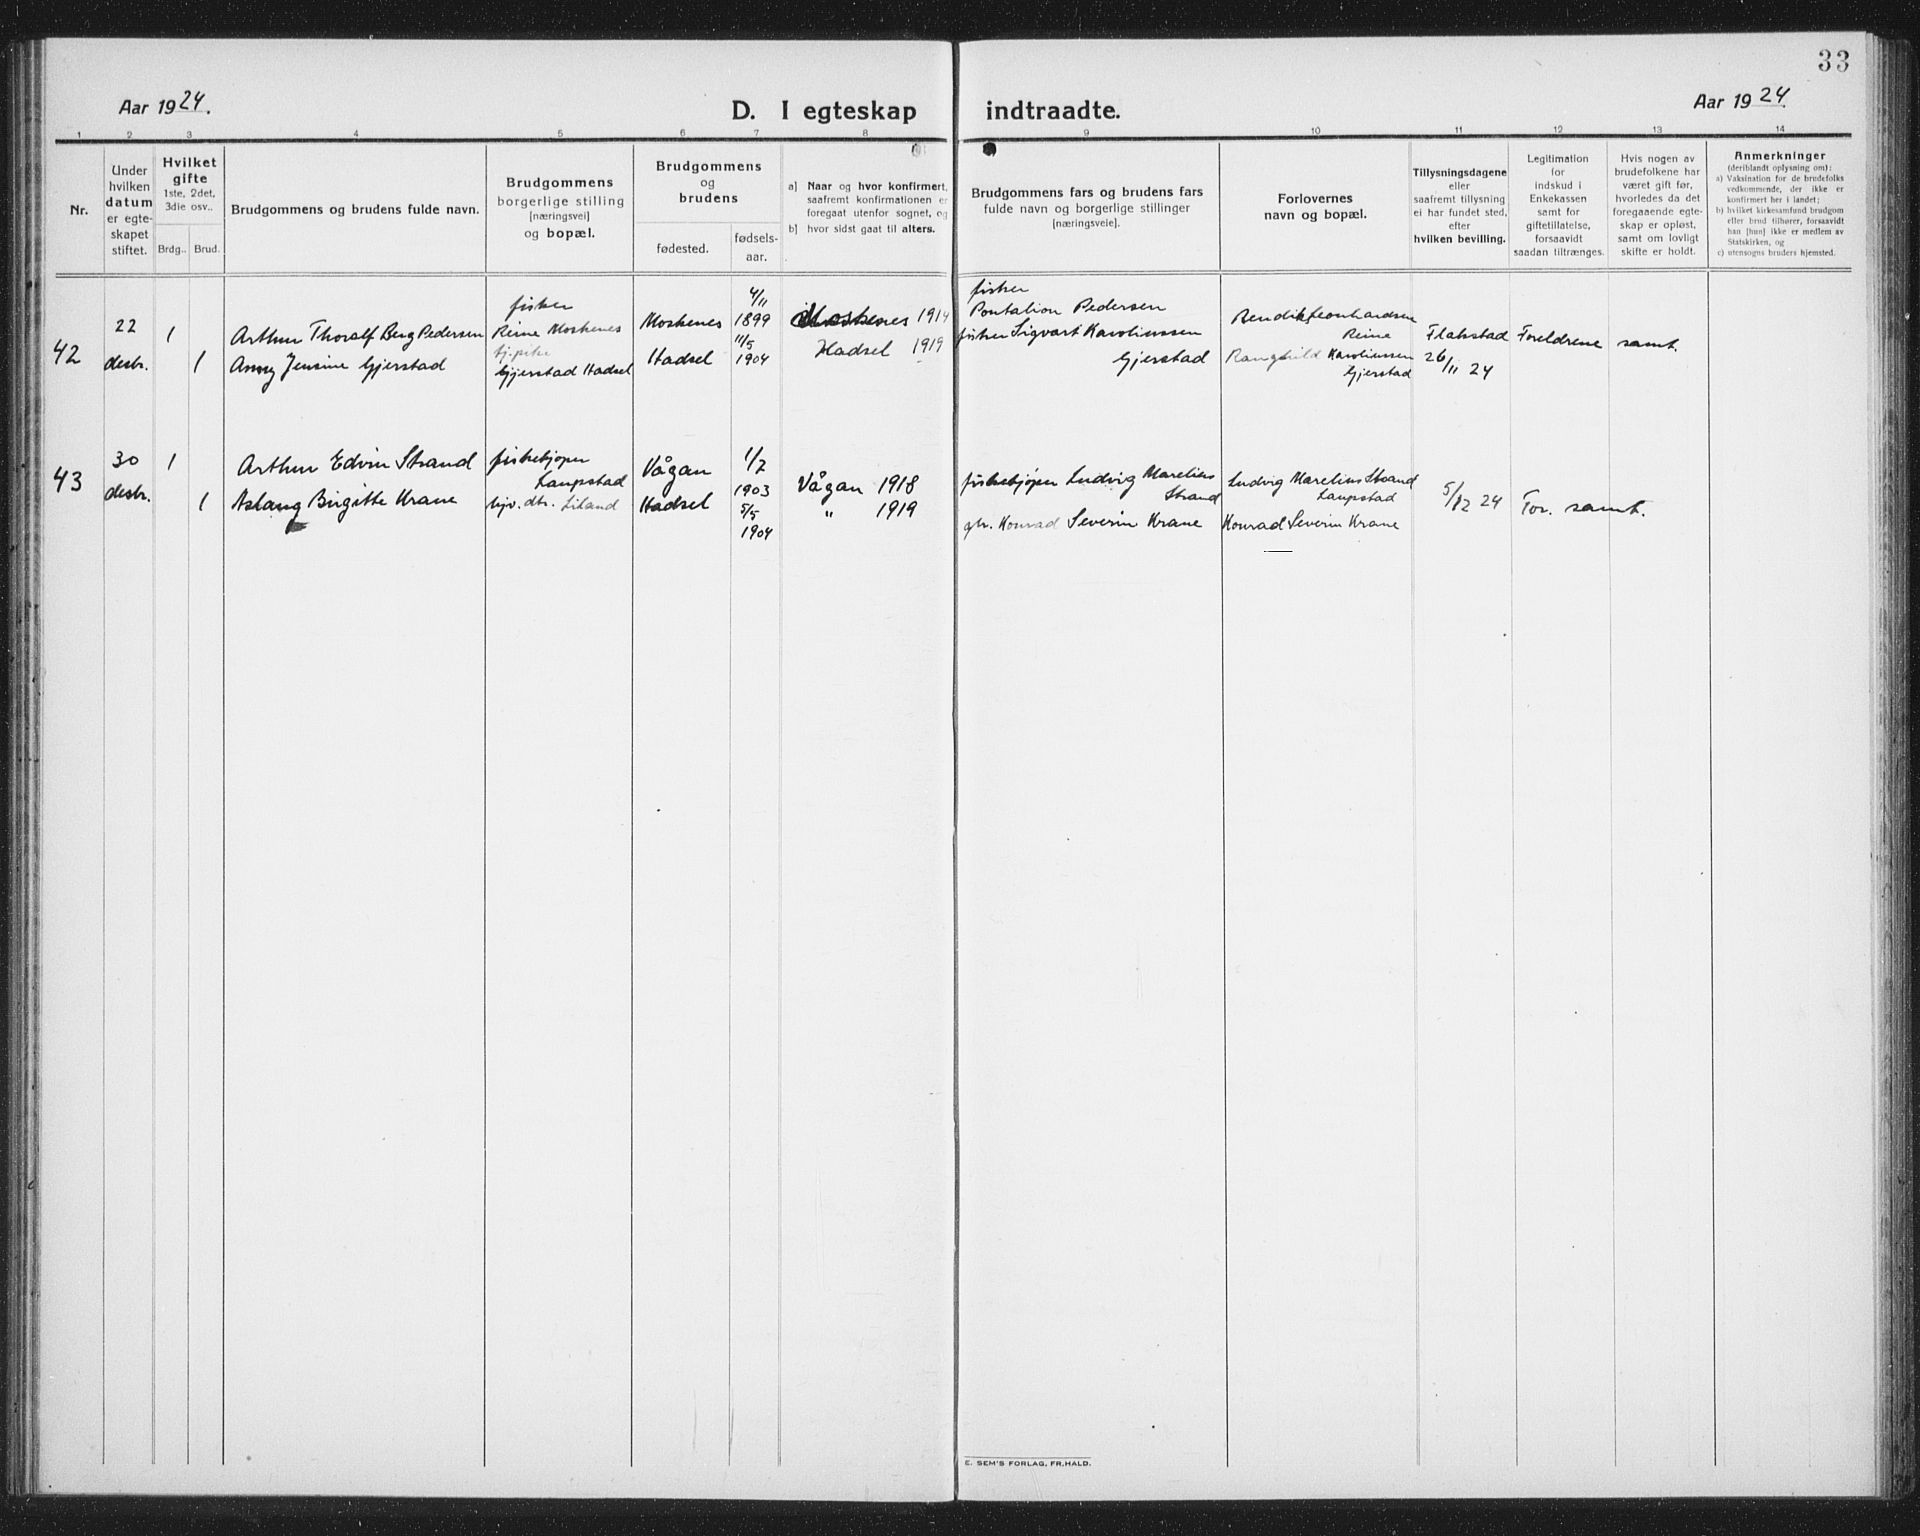 33
Aar 1924.
D. I egteskap indtraadte.
Aar 1924.
1 2 3 4 5 6 7 8 9 10 11 12 13 14
Nr.
Under
hvilken
datum
er egte-
skapet
stiftet.
Hvilket
gifte
1ste, 2det,
3die osv..
Brdg.. Brud.
Brudgommens og brudens fulde navn.
Brudgommens
borgerlige stilling
[næringsvei]
og bopæl.
Brudgommens
og
brudens
fødested.
fødsels-
aar.
a] Naar og hvor konfirmert,
saafremt konfirmationen er
foregaat utenfor sognet, og
b] hvor sidst gaat til alters.
Brudgommens fars og brudens fars
fulde navn og borgerlige stillinger
[næringsveie].
Forlovernes
navn og bopæl.
Tillysningsdagene
eller
saafremt tillysning
ei har fundet sted,
efter
hvilken bevilling.
Legitimation
for
indskud i
Enkekassen
samt for
giftetillatelse,
forsaavidt
saadan tiltrænges.
Hvis nogen av
brudefolkene har
været gift før,
hvorledes da det
foregaaende egte-
skap er opløst,
samt om lovligt
skifte er holdt.
Anmerkninger
(deriblandt oplysning om):
a) Vaksination for de brudefolks
vedkommende, der ikke er
konfirmert her i landet;
b) hvilket kirkesamfund brudgom
eller brud tilhører, forsaavidt
han [hun] ikke er medlem av
Statskirken, og
c) utensogns bruders hjemsted.
42
22
desbr.
1
1
Arthur Thoralf Berg Pedersen
Anny Jensine Gjerstad
fisker
Reine Moskenes
Gjerstad Hadsel
Moskenes
Hadsel
4/11
1899
11/5
1904
Moskenes 1914
Hadsel 1919
fisker
Pontalion Pedersen
fisker Sigvart Karoliussen
Gjerstad
Bendik Leonhardsen
Reine
Ranghild Karoliussen
Gjerstad
Flakstad
26/11 24
Foreldrene samt.
43
30
desbr.
1
1
Arthur Edvin Strand
Aslaug Birgitte Krane
fiskekjøper
Laupstad
hjv. dtr. Liland
Vågan
Hadsel
1/7
1903
5/5
1904
Vågan 1918
" 1919
fiskekjøper Ludvig Marelius
Strand
gbr. Konrad Severin Krane
Ludvig Marelius Strand
Laupstad
Konrad Severin Krane
5/12 24
For. samt.
E. SEM'S FORLAG, FR.HALD.